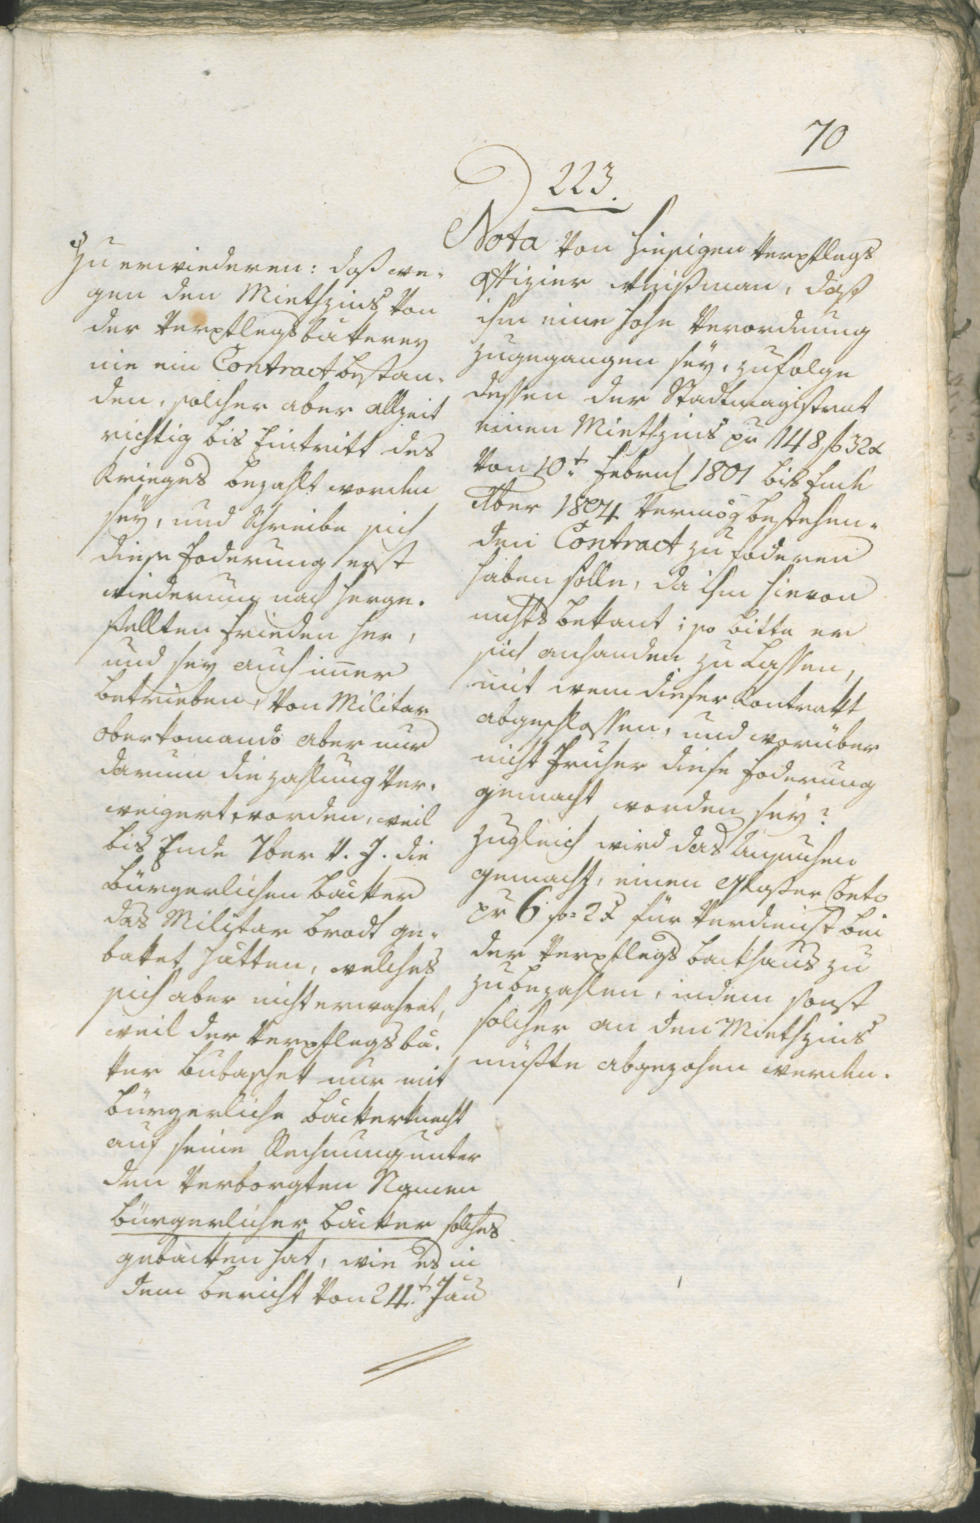 70
223.
Nota von hiesigen Verpflegs
Offizier Weißman, daß
ihm eine hohe Verordnung
zugegangen seÿ, zufolge
dessen der Stadtmagistrat
einen Miethzins pr 1148 f 32 x
von 10t Februar 1801 bis Ende
1804 vermög bestehen-
den Contract zu foderen
haben solle, da ihm hievon
nichts bekant; so bitte er
sich anhanden zu lassen,
mit wem dieser Kontrakt
abgeschlossen, und worüber
nicht früher diese Foderung
gemacht worden seÿ?
Zugleich wird das Ansuchen
gemacht, einen Glaßer Conto
pr 6 f: 2 x für Verdienst bei
der Verpflegs Backhaus zu
zubezahlen, indem sonst
solcher an den Miethzins
müßte abgezohen werden.
Zu erwiederen: daß we-
gen den Miethzins von
der Verpflegsbäckereÿ
nie ein Contract bestan-
den, solcher aber allzeit
richtig bis Eintritt des
Krieges bezahlt worden
seÿ, und schreibe sich
diese Foderung erst
wiederum nach herge-
stellten Frieden her,
und seÿ auch immer
betrieben, von Militar
oberkomando aber nur
darum die zahlung ver-
weigert worden, weil
bis Ende 7ber v. J. die
bürgerlichen Bäcker
das Militar brodt ge-
baket hätten, welches
sich aber nicht erwahret,
weil der Verpflegsbä-
ker nur mit
bürgerliche bäckerknecht
auf seine Rechnung unter
den verborgten Namen
bürgerlicher bäcker solches
gebacken hat, wie es in
dem bericht von 24t Jan